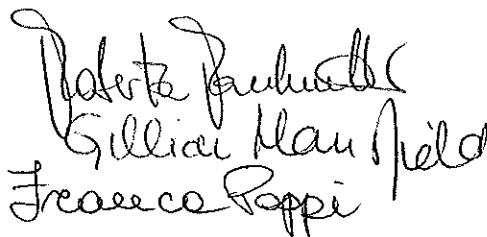 Roberta Facchinetti
Gillian Mansfield
Franca Poppi